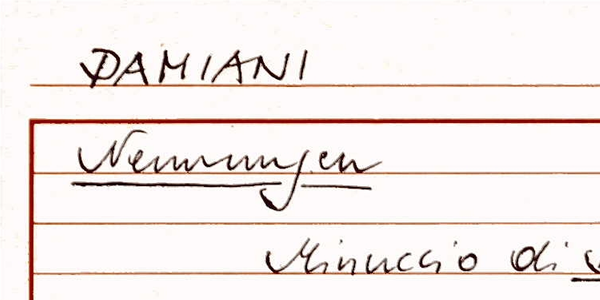 DAMIANI
Nennungen
Minuccio di